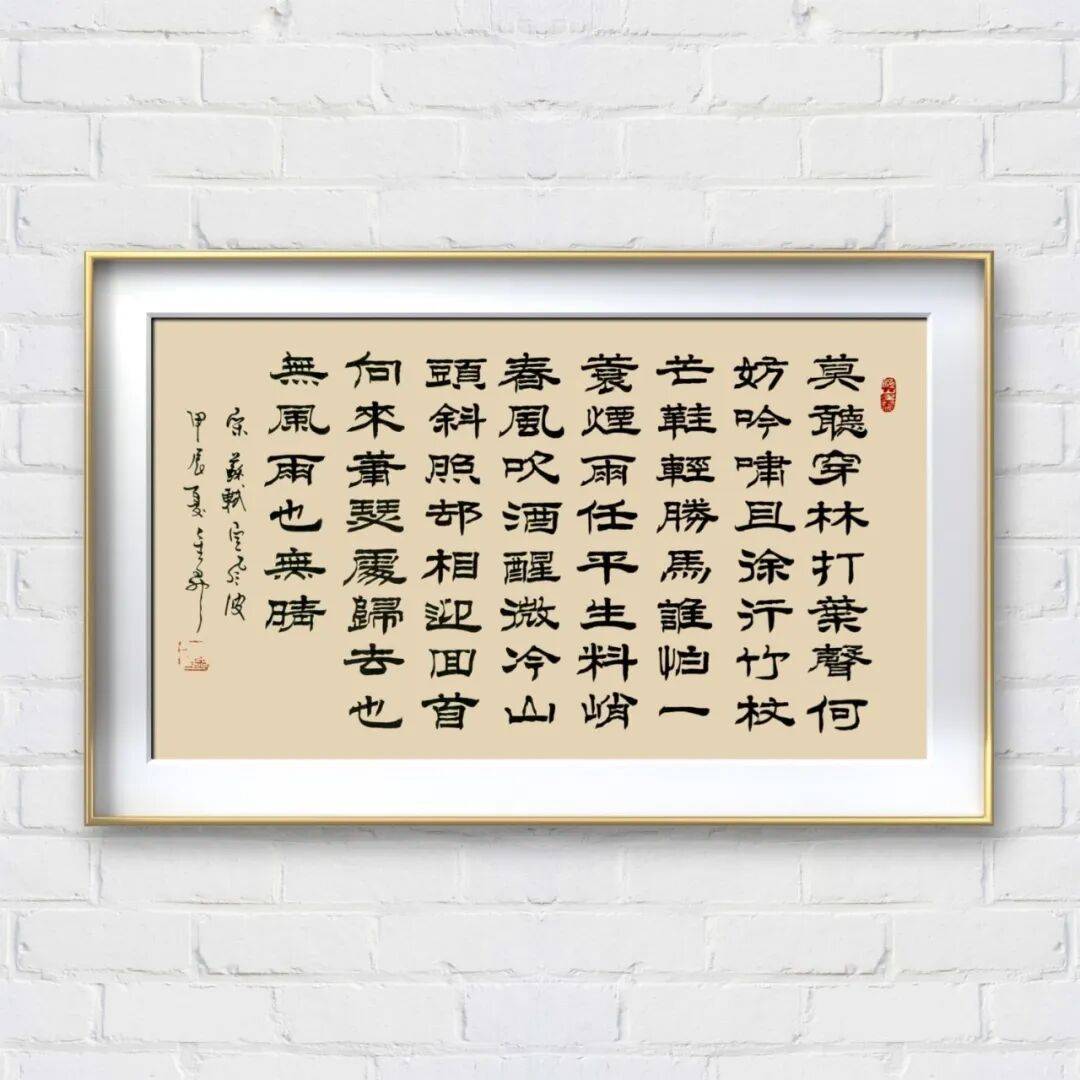 莫聽穿林打葉聲何
妨吟嘯且徐行竹杖
芒鞋輕勝馬誰怕一
蓑煙雨任平生料峭
春風吹酒醒微冷山
頭斜照却相迎回首
向來蕭瑟處歸去也
無風雨也無晴
宋蘇軾定風波
甲辰夏